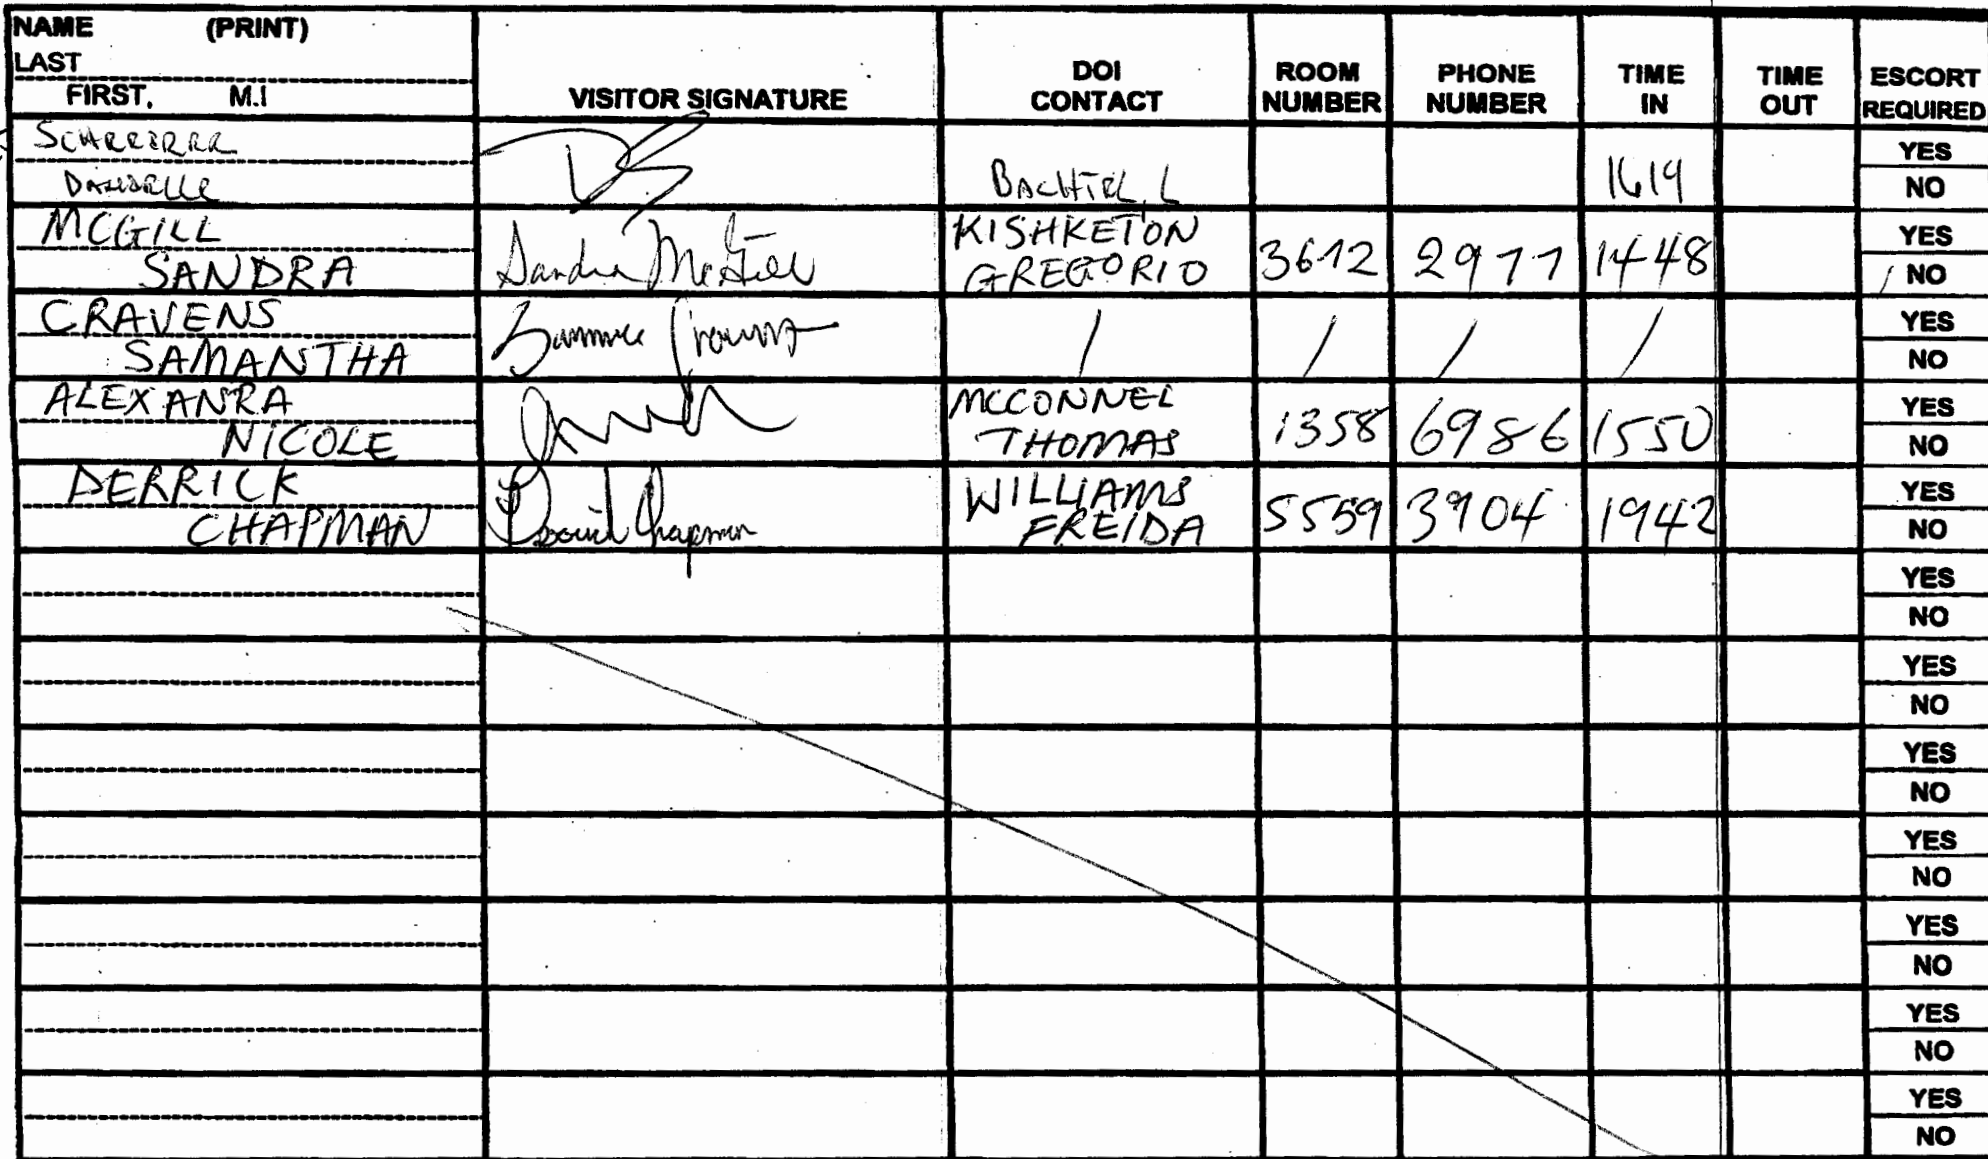 NAME (PRINT)
LAST
FIRST, M.I
VISITOR SIGNATURE
DOI
CONTACT
ROOM
NUMBER
PHONE
NUMBER
TIME
IN
TIME
OUT
ESCORT
REQUIRED
BACHTEL, L
1619
YES
NO
MCGILL
SANDRA
Sandra McGill
KISHKETON
GREGORIO
3612
2977
1448
YES
NO
CRAVENS
SAMANTHA
/ / / /
YES
NO
ALEXANRA
NICOLE
MCCONNEL
THOMAS
1358
6986
1550
YES
NO
DERRICK
CHAPMAN
Chapman
WILLIAMS
FREIDA
5559
3904
1942
YES
NO
YES
NO
YES
NO
YES
NO
YES
NO
YES
NO
YES
NO
YES
NO